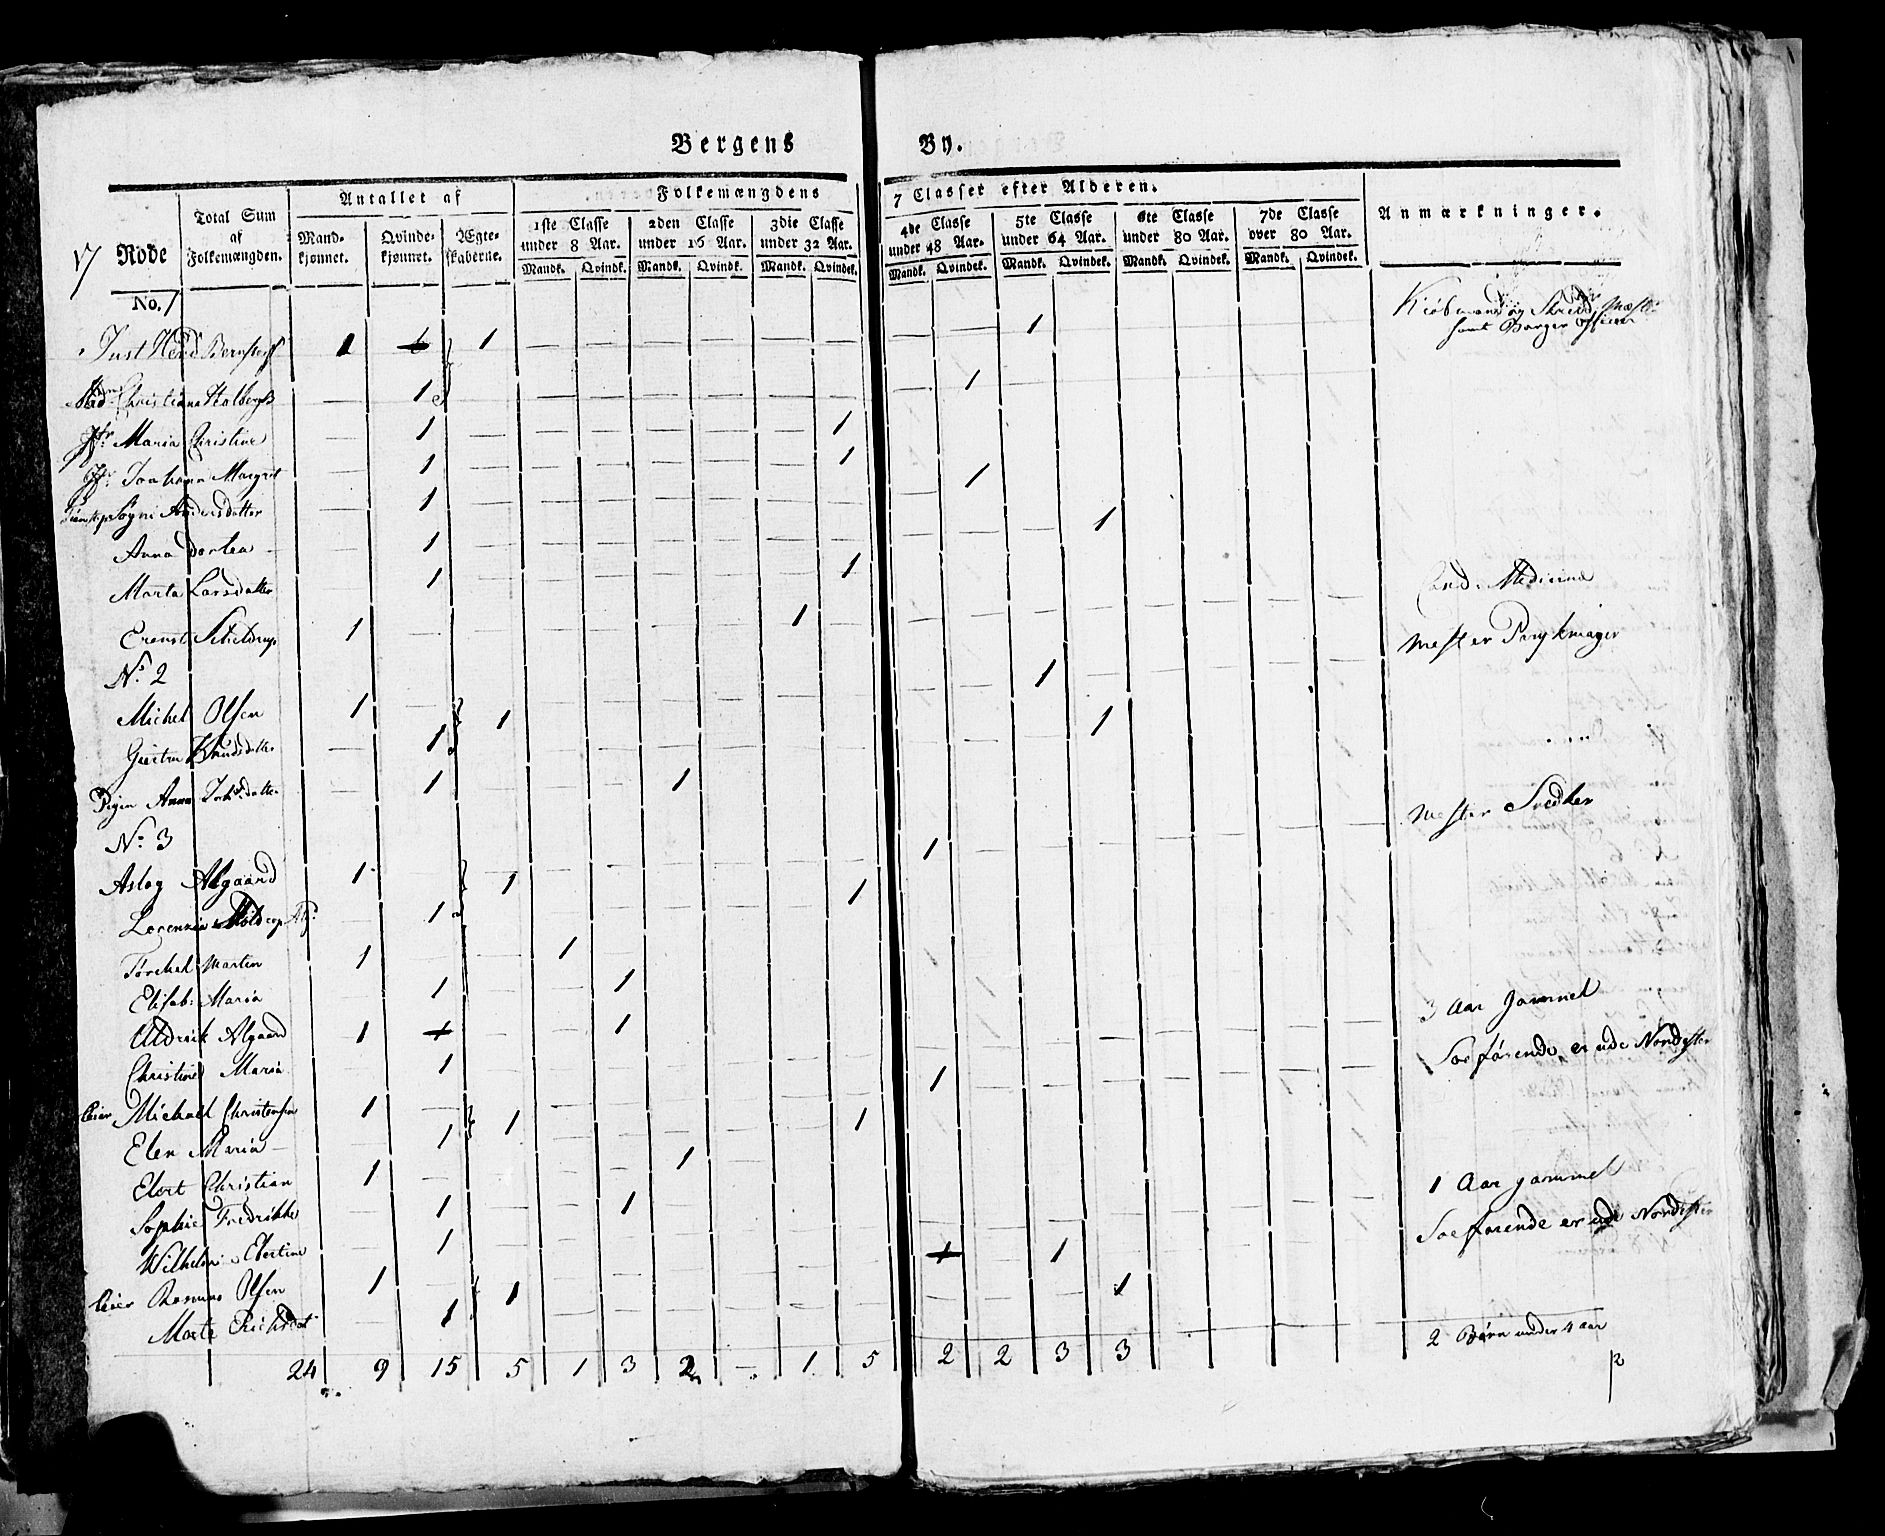 Bergens By.
17 Rode
Total Sum af Folkemængden.
Antallet af
Mandkjønnet. Qvindekjønnet. Ægteskaberne.
Folkemængdens 7 Classer efter Alderen.
1ste Classe under 8 Aar. 2den Classe under 16 Aar. 3die Classe under 32 Aar. 4de Classe under 48 Aar. 5te Classe under 64 Aar. 6te Classe under 80 Aar. 7de Classe over 80 Aar.
Mandk. Qvindk. Mandk. Qvindk. Mandk. Qvindek. Mandk. Qvindek. Mandk. Qvindek. Mandk. Qvindek. Mandk. Qvindek.
Anmærkninger.
No. 1
Just 1 1 1 Kiøbmand og
samt Borger
Christiana 1 1
Jfr. Maria Christine 1 1
Jfr. Johanna Margret 1 1
Søgni Andersdatter 1 1
Anna Dorthea 1 1
Marta Larsdatter 1 1
Schieldrup 1 1 Cand. Medicine
No. 2
Michel Olsen 1 1 1 Mester Parykmager
Knudsdatter 1 1
Pigen Anna 1 1
No. 3
Aslag Algaard 1 1 1 Mester Snedker
Lorenzia 1 1
Martin 1 1
Elisab: Maria 1 1
Uldrik Algaard 1 1
Christine Maria 1 3 Aar gammel
leier Michael Christensen 1 1 1 Soeførende er ude Nordefter
Elen Maria 1 1
Elert Christian 1 1
Sophie Fredrikke 1 1
Wilhelm Elertine 1 1 Aar gammel
leier Rasmus Olsen 1 1 1 Soefarende er ude Nordefter
Marta 1 1
24 9 15 5 1 3 2 – 1 5 2 2 3 3 2 Børn under 4 aar